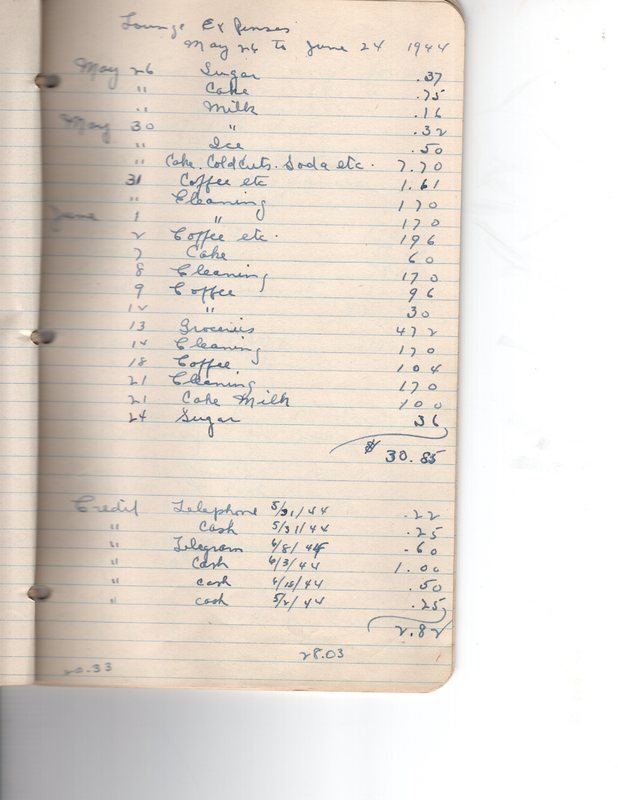 Lounge Expenses
May 26 to June 24 1944
May 26 Sugar .37
" Cake .75
" Milk .16
May 30 " .32
" Ice .50
" Cake. Cold Cuts. Soda etc. 7.70
31 Coffee etc 1.61
" Cleaning 170
June 1 " 170
2 Coffee etc. 196
7 Cake 60
8 Cleaning 170
9 Coffee 96
12 " 30
13 Groceries 472
14 Cleaning 170
18 Coffee 104
21 Cleaning 170
21 Cake Milk 100
24 Sugar 36
$ 30.85
Credit Telephone 5/31/44 .22
" Cash 5/31/44 .25
" Telegram 6/8/44 .60
" Cash 6/3/44 1.00
" cash 6/18/44 .50
" cash 5/2/44 .25
2.82
28.03
20.33